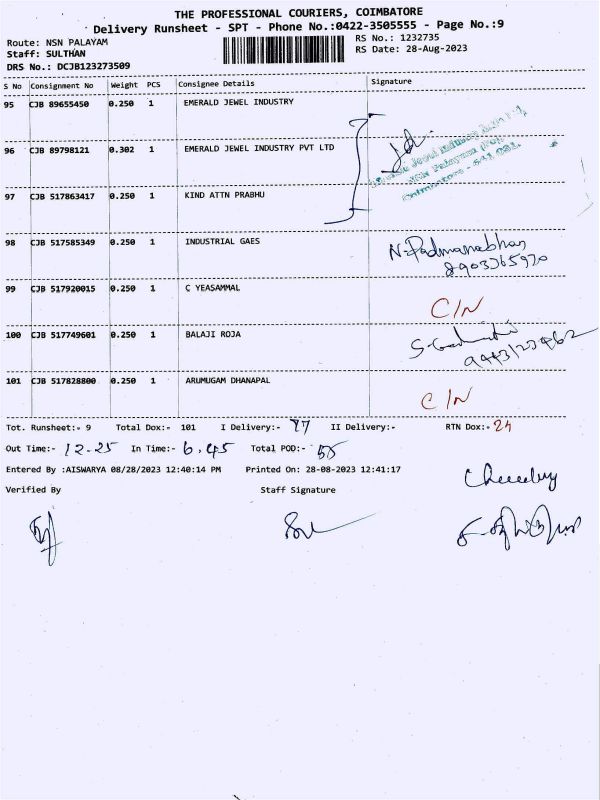 THE PROFESSIONAL COURIERS, COIMBATORE
Delivery Runsheet - SPT - Phone No.:0422-3505555 - Page No.:9
Route: NSN PALAYAM
RS No.: 1232735
Staff: SULTHAN
RS Date: 28-Aug-2023
DRS No.: DCJB123273509
S No Consignment No Weight PCS Consignee Details Signature
95 CJB 89655450 0.250 1 EMERALD JEWEL INDUSTRY
96 CJB 89798121 0.302 1 EMERALD JEWEL INDUSTRY PVT LTD
97 CJB 517863417 0.250 1 KIND ATTN PRABHU
98 CJB 517585349 0.250 1 INDUSTRIAL GAES N.Padmanabhan
8903765970
99 CJB 517920015 0.250 1 C YEASAMMAL C/N
100 CJB 517749601 0.250 1 BALAJI ROJA
101 CJB 517828800 0.250 1 ARUMUGAM DHANAPAL C/N
Tot. Runsheet:- 9 Total Dox:- 101 I Delivery:- 77 II Delivery:- RTN Dox:- 24
Out Time:- 12.25 In Time:- 6.45 Total POD:-
Entered By :AISWARYA 08/28/2023 12:40:14 PM Printed On: 28-08-2023 12:41:17
Verified By Staff Signature